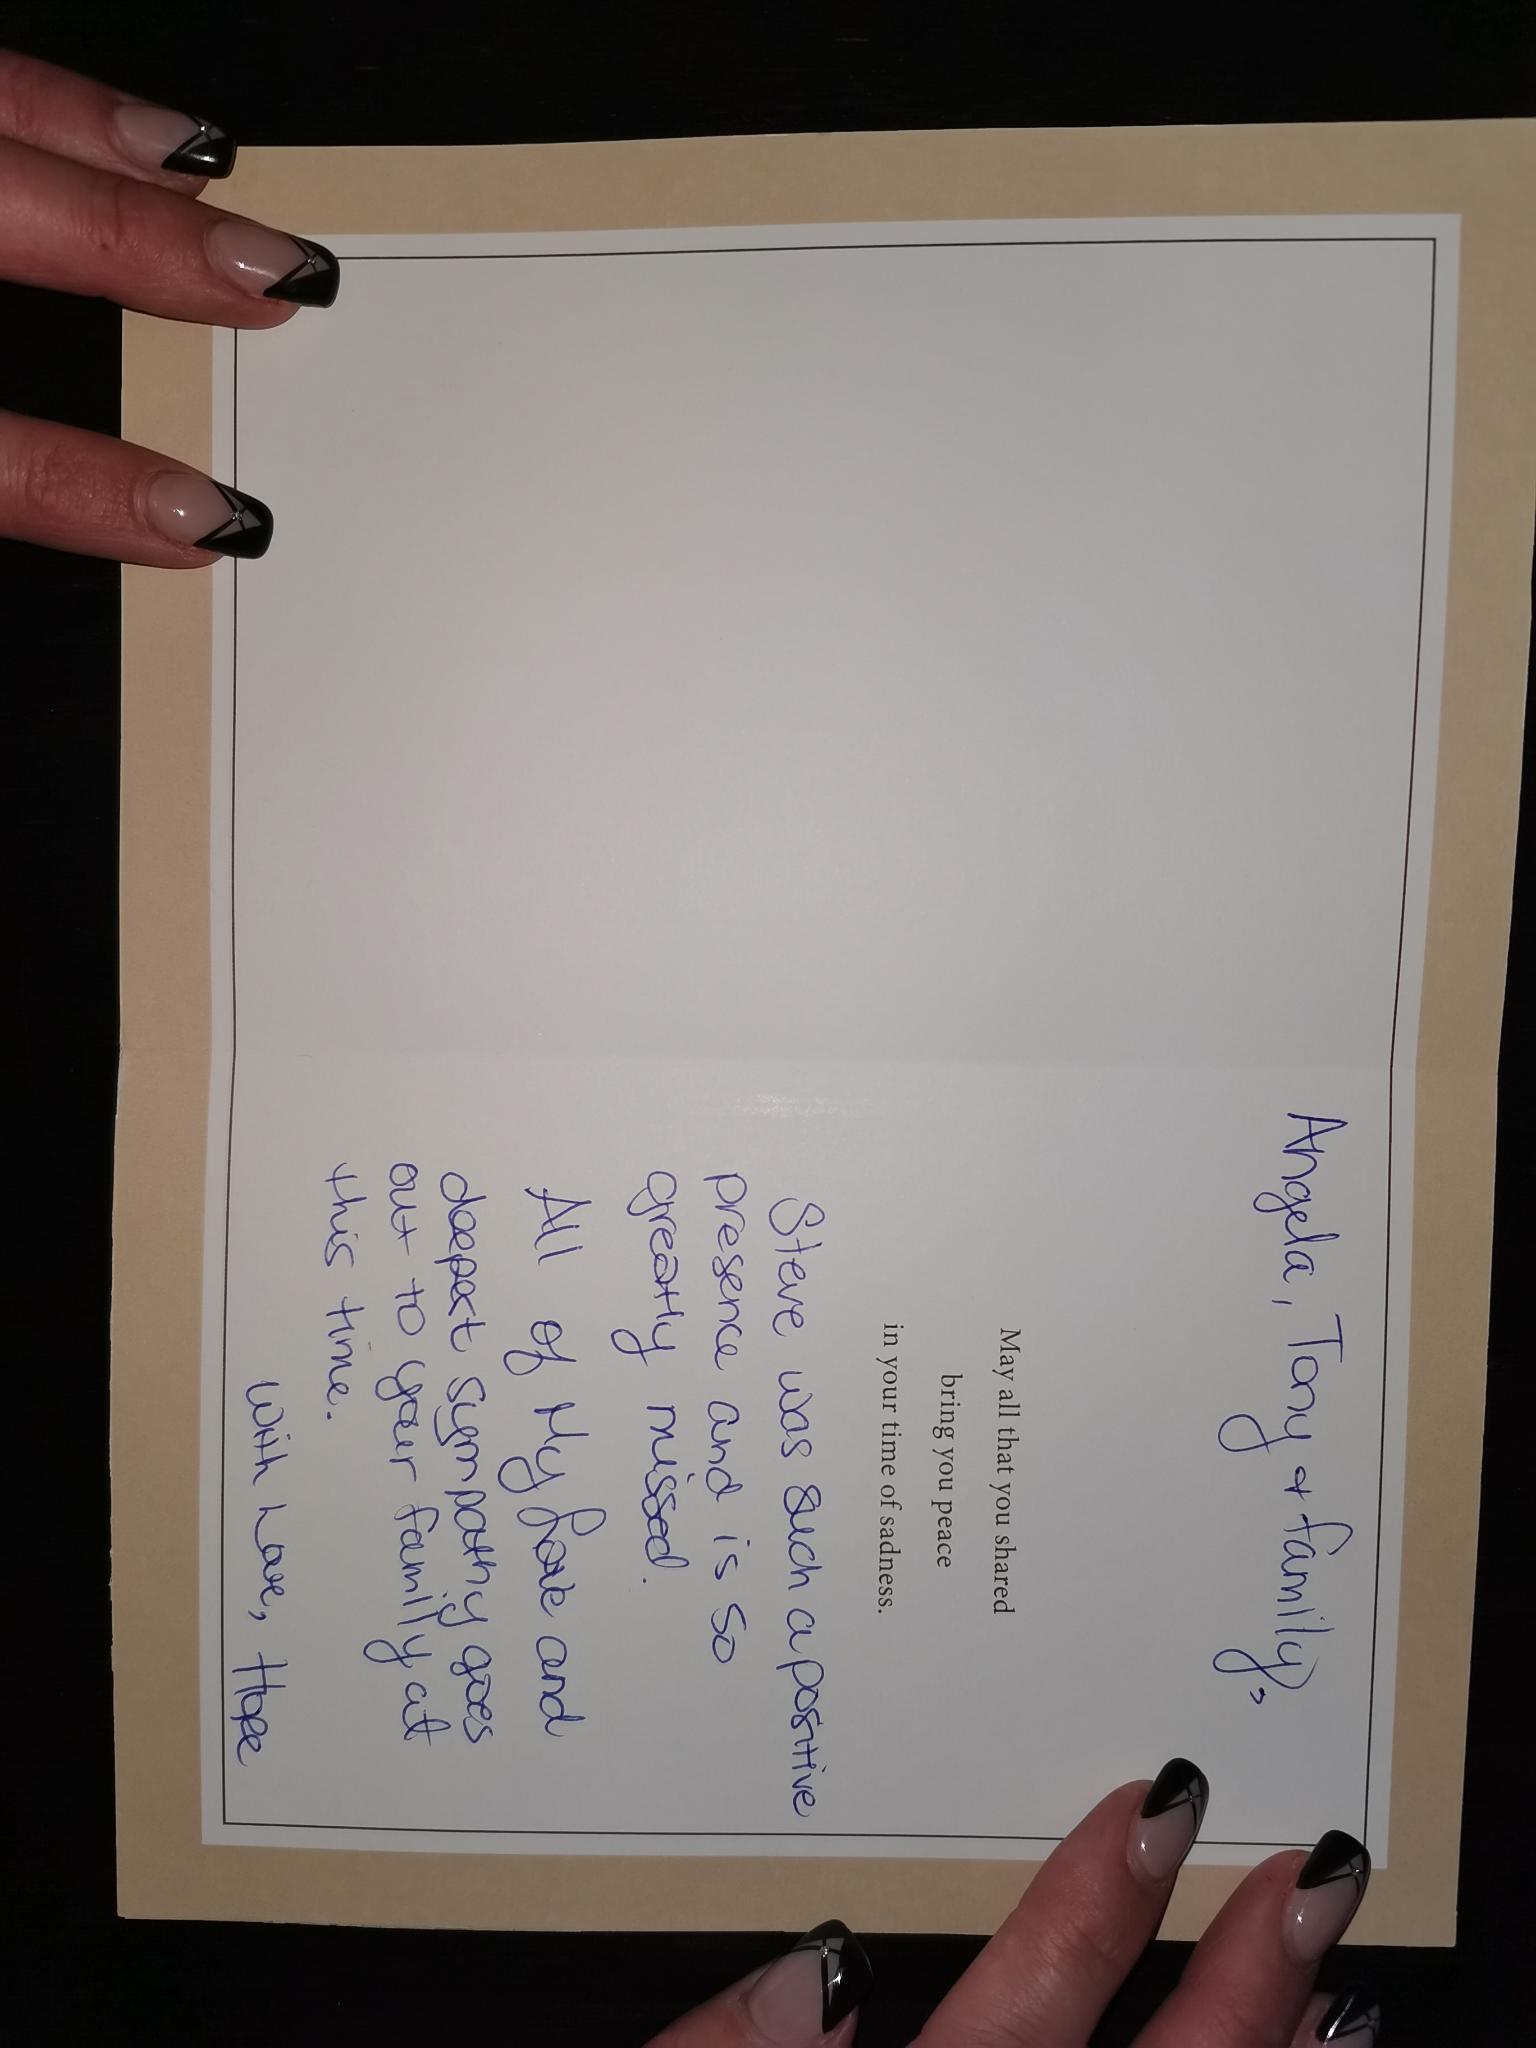 Angela, Tony & family,
May all that you shared
bring you peace
in your time of sadness.
Steve was such a positive
presence and is so
greatly missed.
All of My love and
deepest sympathy goes
out to your family at
this time.
With Love, Hope